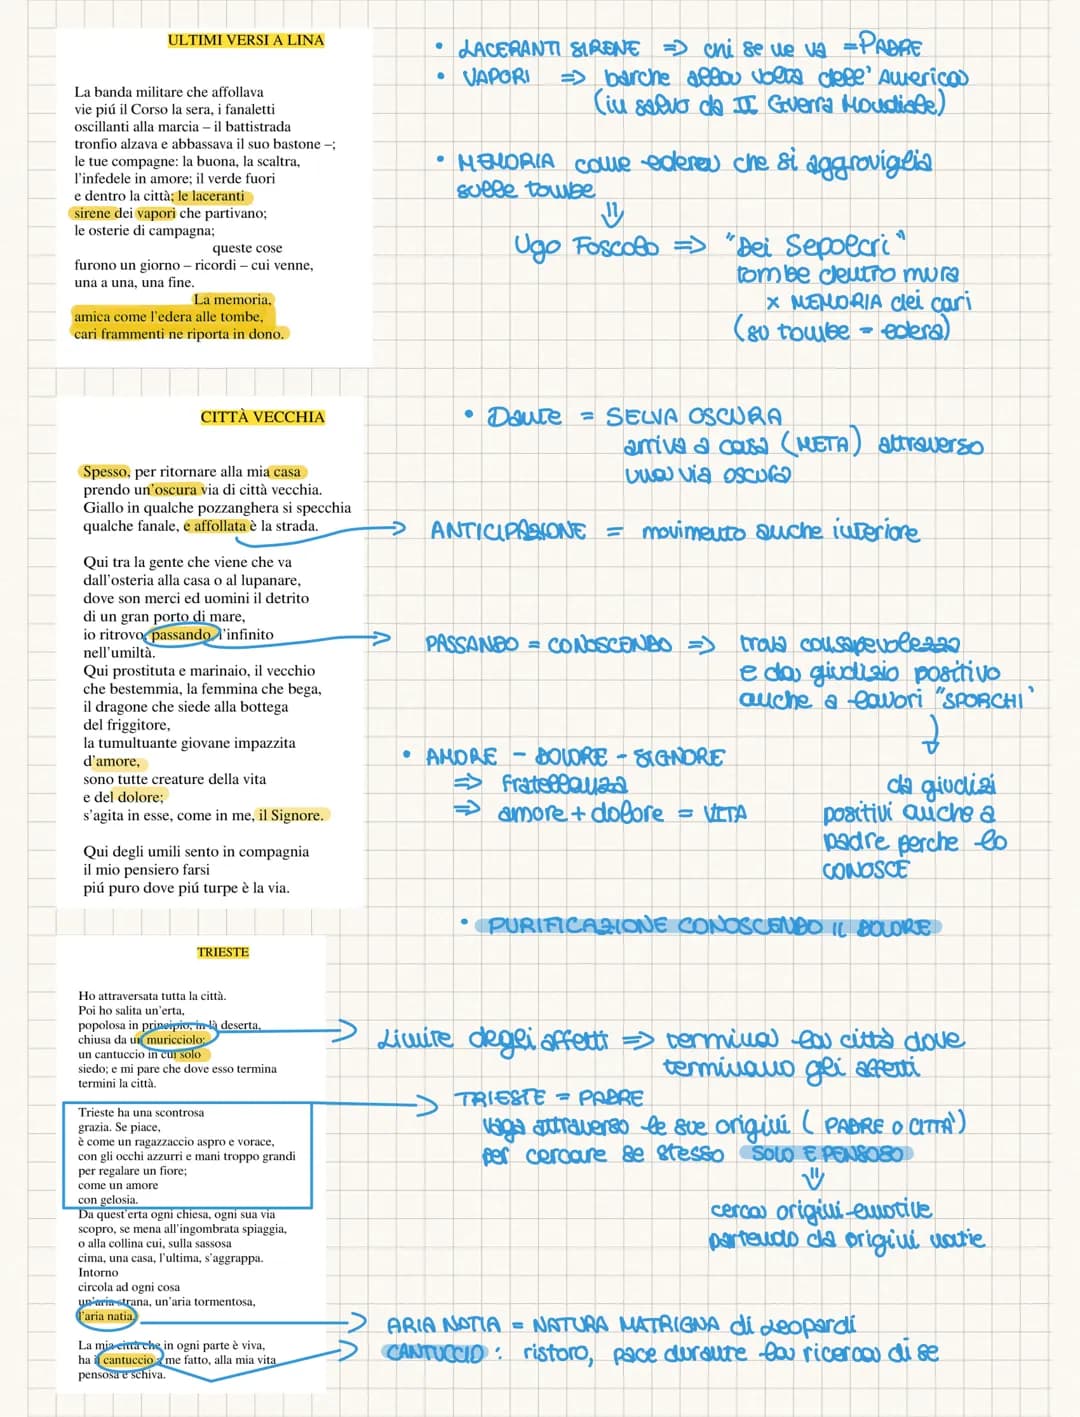 ULTIMI VERSI A LINA
La banda militare che affollava
vie piú il Corso la sera, i fanaletti
oscillanti alla marcia – il battistrada
tronfio alzava e abbassava il suo bastone –;
le tue compagne: la buona, la scaltra,
l'infedele in amore; il verde fuori
e dentro la città; le laceranti
sirene dei vapori che partivano;
le osterie di campagna;
queste cose
furono un giorno – ricordi – cui venne,
una a una, una fine.
La memoria,
amica come l'edera alle tombe,
cari frammenti ne riporta in dono.
• LACERANTI SIRENE => chi se ne va = PADRE
• VAPORI => barche allau volta dell' America
(in salvo da II Guerra Mondiale)
• MEMORIA come edera che si aggroviglia
sulle tombe
Ugo Foscolo => "Dei Sepolcri"
tombe dentro mura
x MEMORIA dei cari
(su tombe - edera)
CITTÀ VECCHIA
Spesso, per ritornare alla mia casa
prendo un'oscura via di città vecchia.
Giallo in qualche pozzanghera si specchia
qualche fanale, e affollata è la strada.
Qui tra la gente che viene che va
dall'osteria alla casa o al lupanare,
dove son merci ed uomini il detrito
di un gran porto di mare,
io ritrovo, passando, l'infinito
nell'umiltà.
Qui prostituta e marinaio, il vecchio
che bestemmia, la femmina che bega,
il dragone che siede alla bottega
del friggitore,
la tumultuante giovane impazzita
d'amore,
sono tutte creature della vita
e del dolore;
s'agita in esse, come in me, il Signore.
Qui degli umili sento in compagnia
il mio pensiero farsi
piú puro dove piú turpe è la via.
• Dante = SELVA OSCURA
arriva a casa (META) attraverso
una via oscura
ANTICIPAZIONE = movimento anche interiore
PASSANDO = CONOSCENDO => trova consapevolezza
e da giudizio positivo
anche a lavori "SPORCHI"
da giudizi
positivi anche a
padre perche lo
CONOSCE
• AMORE - DOLORE - SIGNORE
=> fratellanza
=> amore + dolore = VITA
• PURIFICAZIONE CONOSCENDO IL DOLORE
TRIESTE
Ho attraversata tutta la città.
Poi ho salita un'erta,
popolosa in principio, in là deserta,
chiusa da un muricciolo:
un cantuccio in cui solo
siedo; e mi pare che dove esso termina
termini la città.
Trieste ha una scontrosa
grazia. Se piace,
è come un ragazzaccio aspro e vorace,
con gli occhi azzurri e mani troppo grandi
per regalare un fiore;
come un amore
con gelosia.
Da quest'erta ogni chiesa, ogni sua via
scopro, se mena all'ingombrata spiaggia,
o alla collina cui, sulla sassosa
cima, una casa, l'ultima, s'aggrappa.
Intorno
circola ad ogni cosa
un'aria strana, un'aria tormentosa,
l'aria natia.
La mia città che in ogni parte è viva,
ha il cantuccio a me fatto, alla mia vita
pensosa e schiva.
Limite degli affetti => termina la città dove
terminano gli affetti
TRIESTE = PADRE
Vaga attraverso le sue origini ( PADRE o CITTA')
per cercare se stesso SOLO E PENSOSO
cerca origini emotive
partendo da origini natie
ARIA NATIA = NATURA MATRIGNA di Leopardi
CANTUCCIO : ristoro, pace durante la ricerca di se